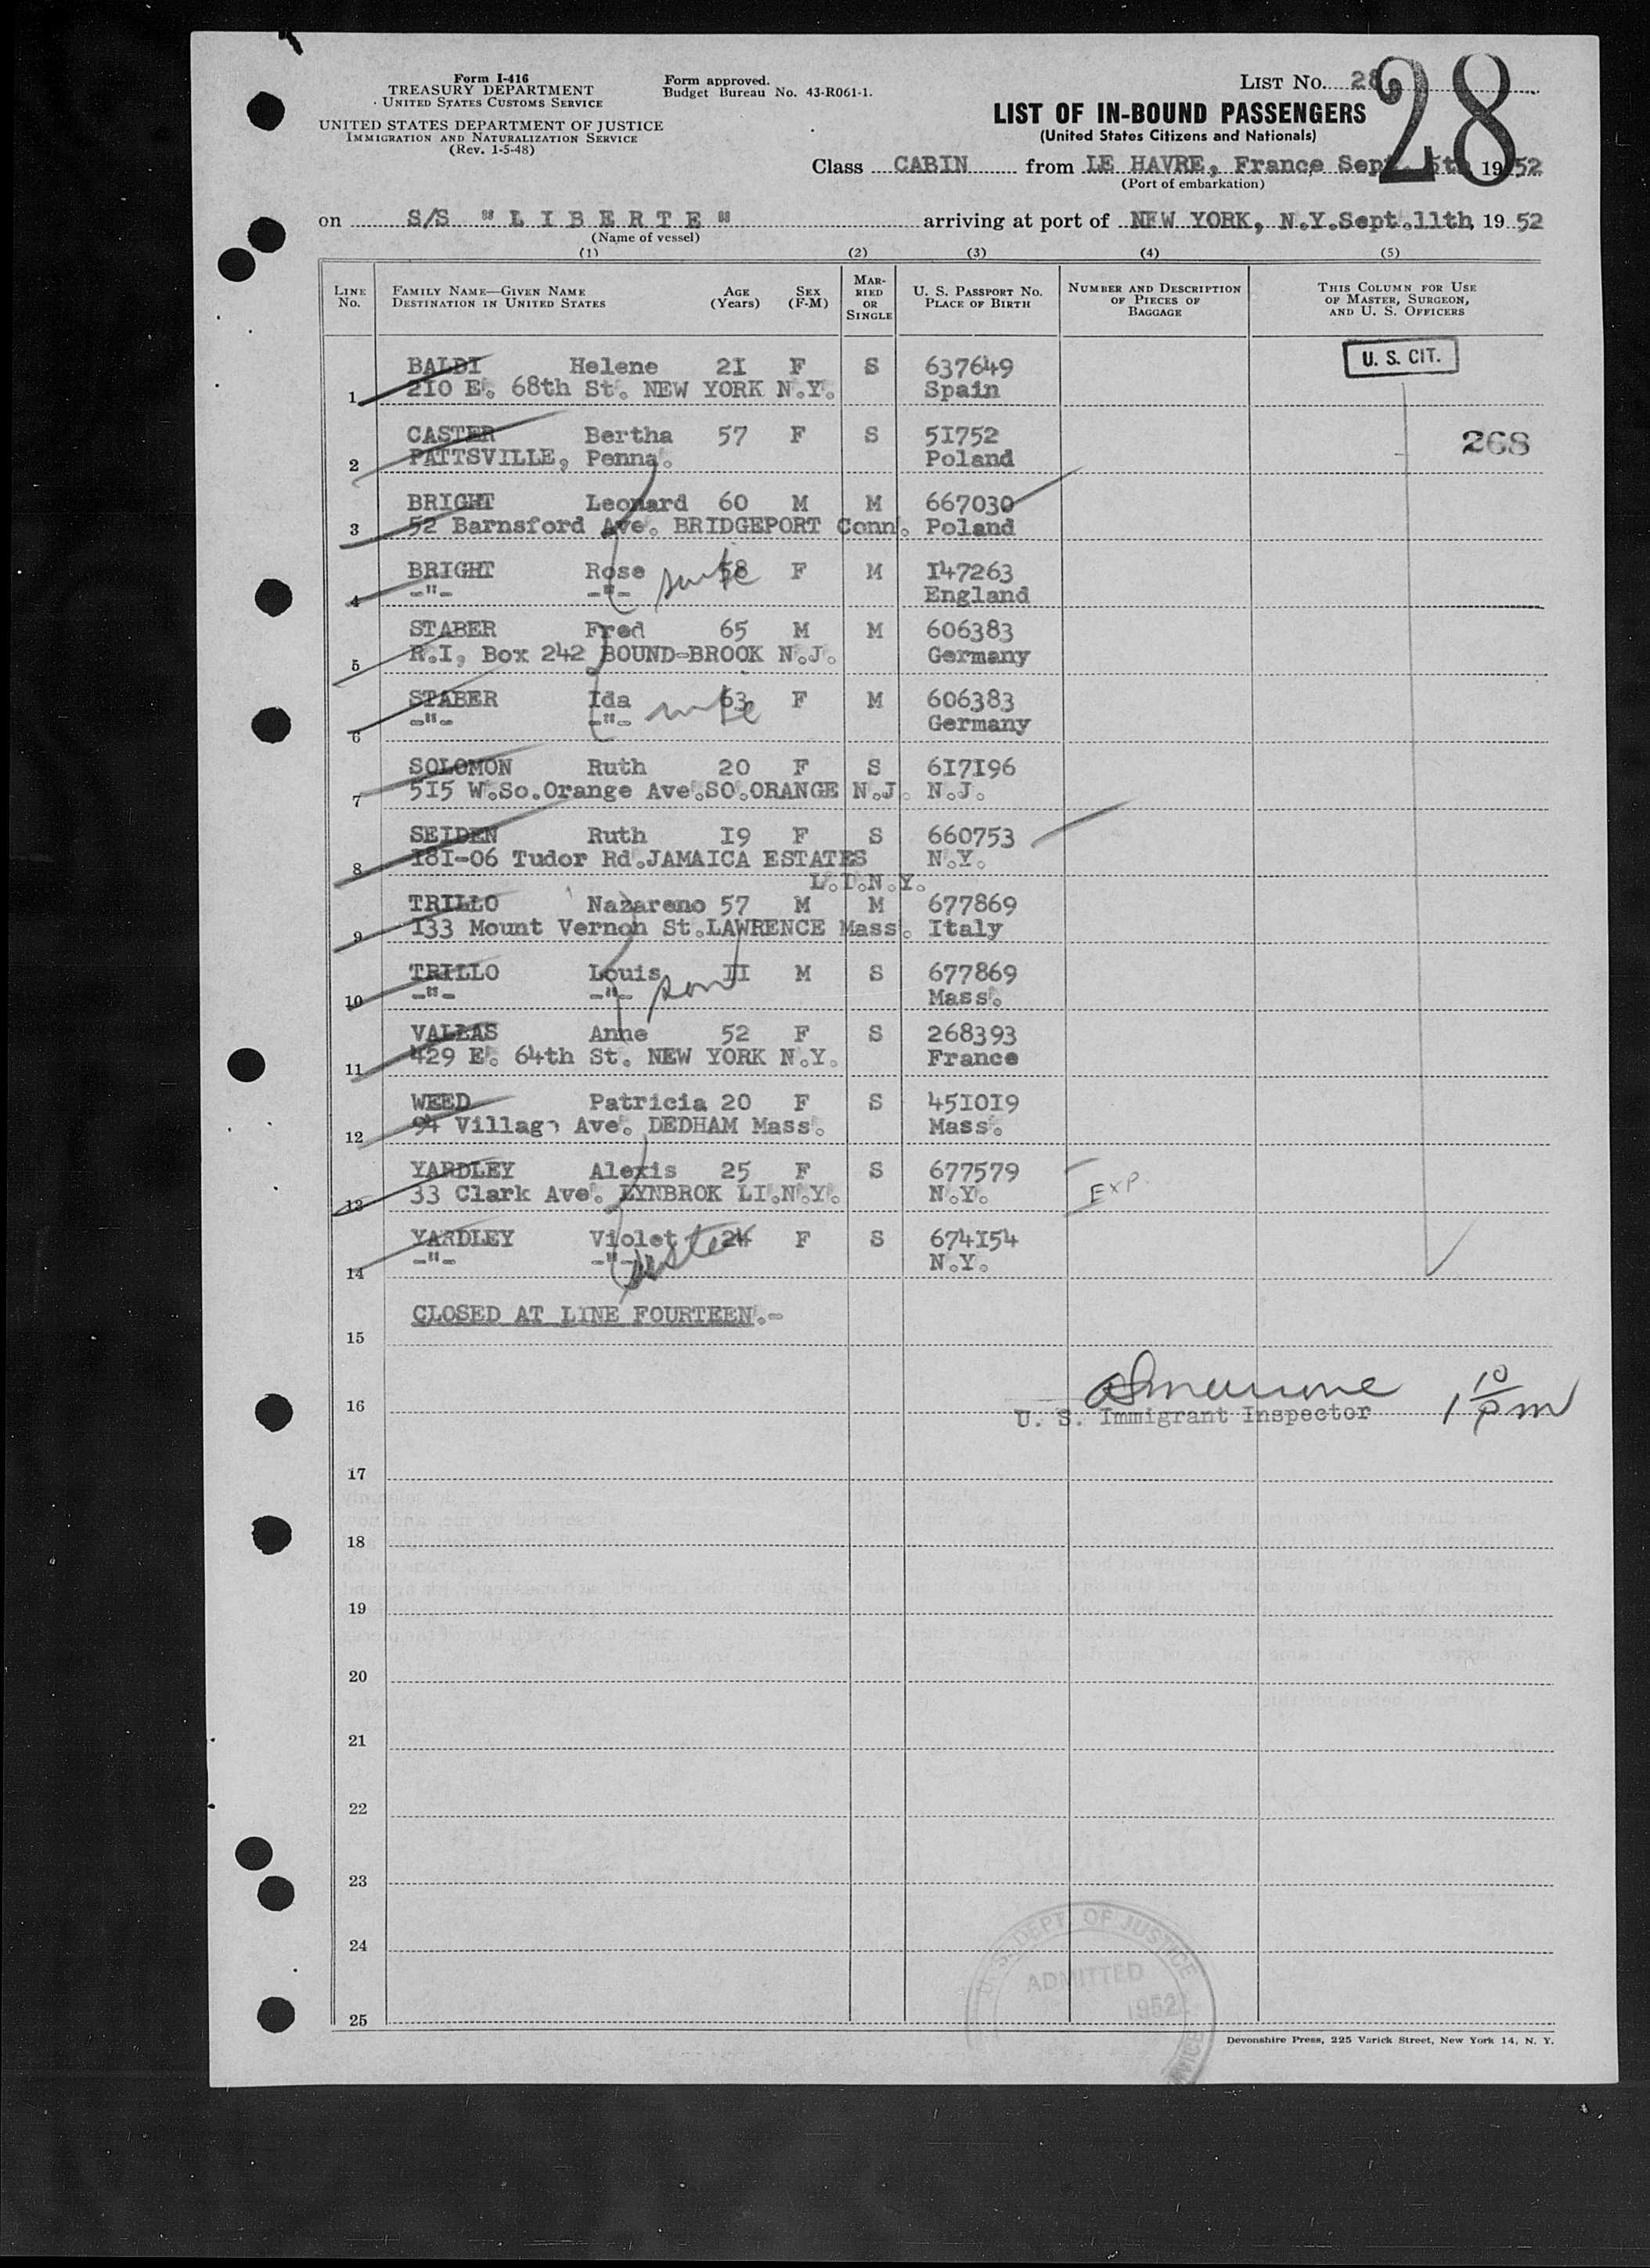 Form I-416
TREASURY DEPARTMENT
UNITED STATES CUSTOMS SERVICE
UNITED STATES DEPARTMENT OF JUSTICE
IMMIGRATION AND NATURALIZATION SERVICE
(Rev. 1-5-48)
Form approved.
Budget Bureau No. 43-R061-1.
LIST No. 28
28
LIST OF IN-BOUND PASSENGERS
(United States Citizens and Nationals)
Class CABIN from LE HAVRE, France Sept. 5th 1952
(Port of embarkation)
on S/S "LIBERTE" arriving at port of NEW YORK, N.Y. Sept. 11th, 1952
(Name of vessel)
(1) (2) (3) (4) (5)
LINE No. FAMILY NAME—GIVEN NAME DESTINATION IN UNITED STATES AGE (Years) SEX (F-M) MARRIED OR SINGLE U. S. PASSPORT NO. PLACE OF BIRTH NUMBER AND DESCRIPTION OF PIECES OF BAGGAGE THIS COLUMN FOR USE OF MASTER, SURGEON, AND U. S. OFFICERS
BALDI Helene 21 F S 637649 U. S. CIT.
1 210 E. 68th St. NEW YORK N.Y. Spain
CASTER Bertha 57 F S 51752 268
2 PATTSVILLE, Penna. Poland
BRIGHT Leonard 60 M M 667030
3 52 Barnsford Ave. BRIDGEPORT Conn. Poland
BRIGHT Rose 58 F M 147263
wife
4 -"- -"- England
STABER Fred 65 M M 606383
5 R.I, Box 242 BOUND-BROOK N.J. Germany
STABER Ida 63 F M 606383
wife
6 -"- -"- Germany
SOLOMON Ruth 20 F S 617196
7 515 W.So.Orange Ave.SO.ORANGE N.J. N.J.
SEIDEN Ruth 19 F S 660753
8 181-06 Tudor Rd.JAMAICA ESTATES N.Y.
L.I.N.Y.
TRILLO Nazareno 57 M M 677869
9 133 Mount Vernon St.LAWRENCE Mass. Italy
TRILLO Louis 11 M S 677869
son
10 -"- -"- Mass.
VALLAS Anne 52 F S 268393
11 429 E. 64th St. NEW YORK N.Y. France
WEED Patricia 20 F S 451019
12 94 Village Ave. DEDHAM Mass. Mass.
YARDLEY Alexis 25 F S 677579
EXP.
13 33 Clark Ave. LYNBROK LI.N.Y. N.Y.
YARDLEY Violet 24 F S 674154
sister
14 -"- -"- N.Y.
CLOSED AT LINE FOURTEEN.-
15
16 U. S. Immigrant Inspector 1 10/pm
17
18
19
20
21
22
23
24
25
U. S. DEPT. OF JUSTICE
ADMITTED
1952
Devonshire Press, 225 Varick Street, New York 14, N. Y.